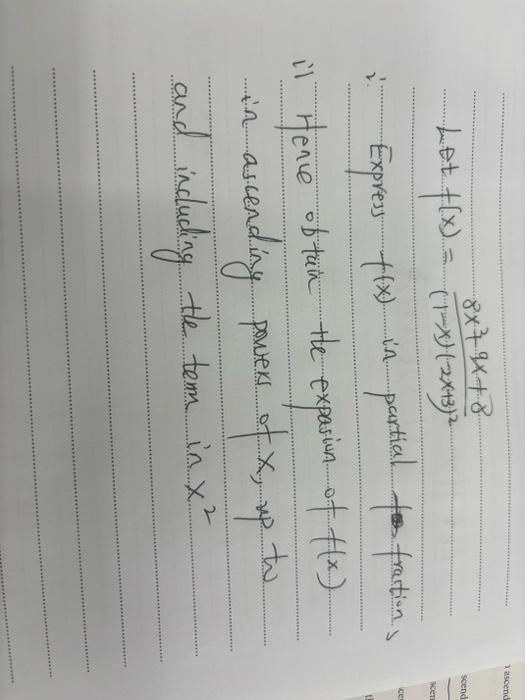 Let f(x) = 8x²+9x+8 / (1-x)(2x+3)²
i. Express f(x) in partial fractions
ii Hence obtain the expasion of f(x)
in ascending powers of x, up to
and including the term in x²
ascend
scend
scen